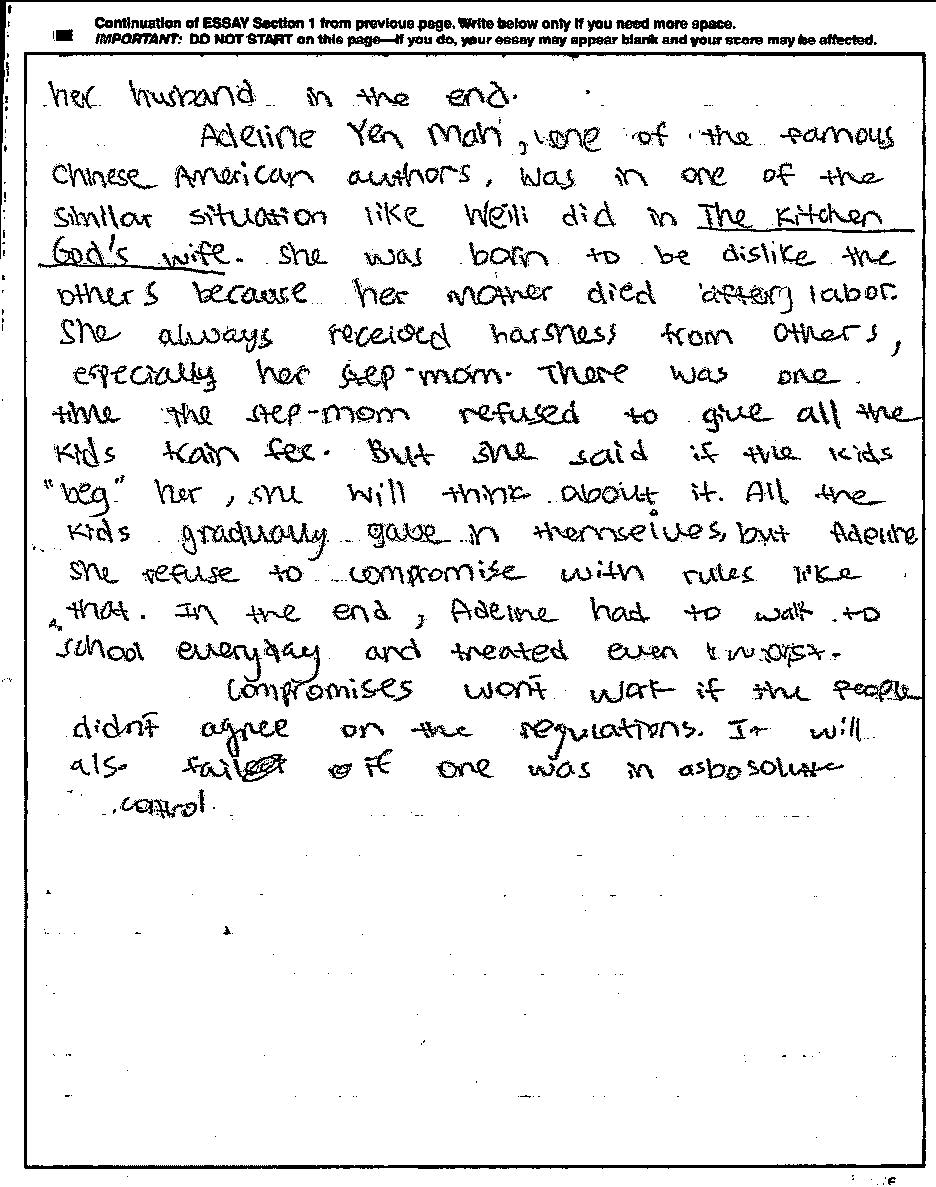 Continuation of ESSAY Section 1 from previous page. Write below only if you need more space.
IMPORTANT: DO NOT START on this page—if you do, your essay may appear blank and your score may be affected.
her husband in the end.
Adeline Yen Mah, one of the famous
Chinese American authors, was in one of the
similar situation like Weili did in The Kitchen
God's wife. She was born to be dislike the
others because her mother died after labor.
She always received harshness from others,
especially her step-mom. There was one
time the step-mom refused to give all the
kids train fee. But she said if the kids
"beg" her, she will think about it. All the
kids gradually gave in themselves, but Adeline
she refuse to compromise with rules like
that. In the end, Adeline had to walk to
school everyday and treated even worst.
Compromises won't work if the people
didn't agree on the regulations. It will
also fail if one was in asbosolute
control.